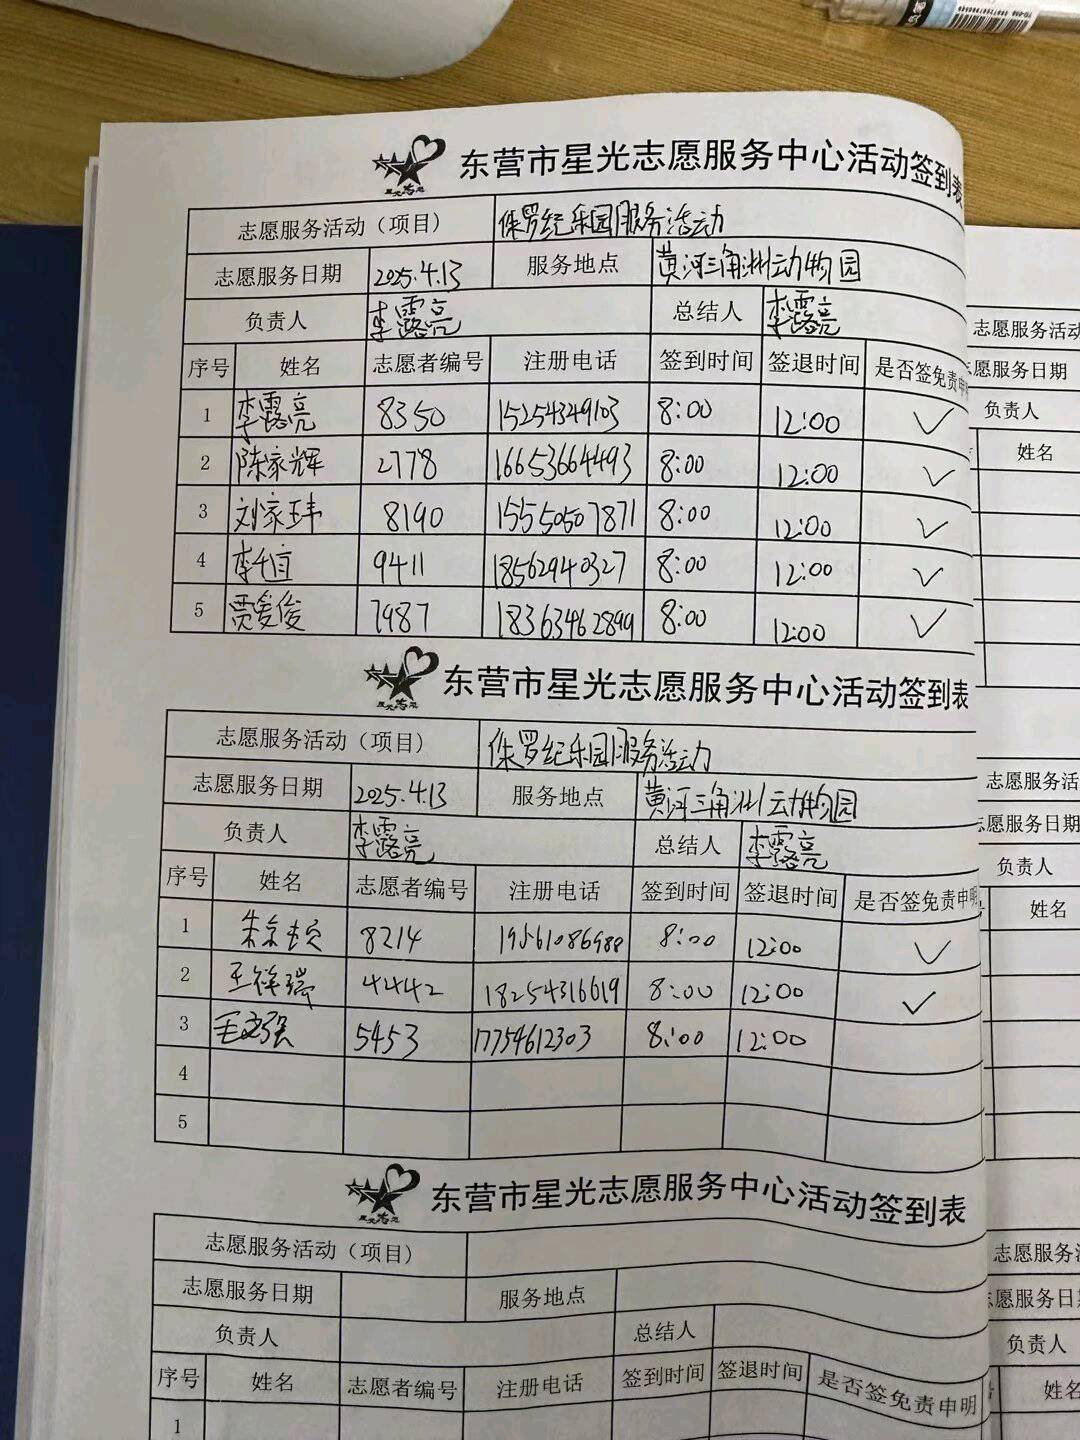 东营市星光志愿服务中心活动签到表
志愿服务活动（项目） 侏罗纪乐园服务活动
志愿服务日期 2025.4.13 服务地点 黄河三角洲动物园
负责人 李露亮 总结人 李露亮
序号 姓名 志愿者编号 注册电话 签到时间 签退时间 是否签免责申明
1 李露亮 8350 15254349103 8:00 12:00 ✓
2 陈家辉 2778 16653664493 8:00 12:00 ✓
3 刘家玮 8190 15550507871 8:00 12:00 ✓
4 9411 18562940327 8:00 12:00 ✓
5 贾爱俊 7987 18363462899 8:00 12:00 ✓
东营市星光志愿服务中心活动签到表
志愿服务活动（项目） 侏罗纪乐园服务活动
志愿服务日期 2025.4.13 服务地点 黄河三角洲动物园
负责人 李露亮 总结人 李露亮
序号 姓名 志愿者编号 注册电话 签到时间 签退时间 是否签免责申明
1 8214 8:00 12:00 ✓
2 王祥瑞 4442 18254316619 8:00 12:00 ✓
3 毛文强 5453 17754612303 8:00 12:00
4
5
东营市星光志愿服务中心活动签到表
志愿服务活动（项目）
志愿服务日期 服务地点
负责人 总结人
序号 姓名 志愿者编号 注册电话 签到时间 签退时间 是否签免责申明
1
志愿服务活动
志愿服务日期
负责人
姓名
志愿服务活
志愿服务日期
负责人
姓名
志愿服务
志愿服务日
负责人
姓名